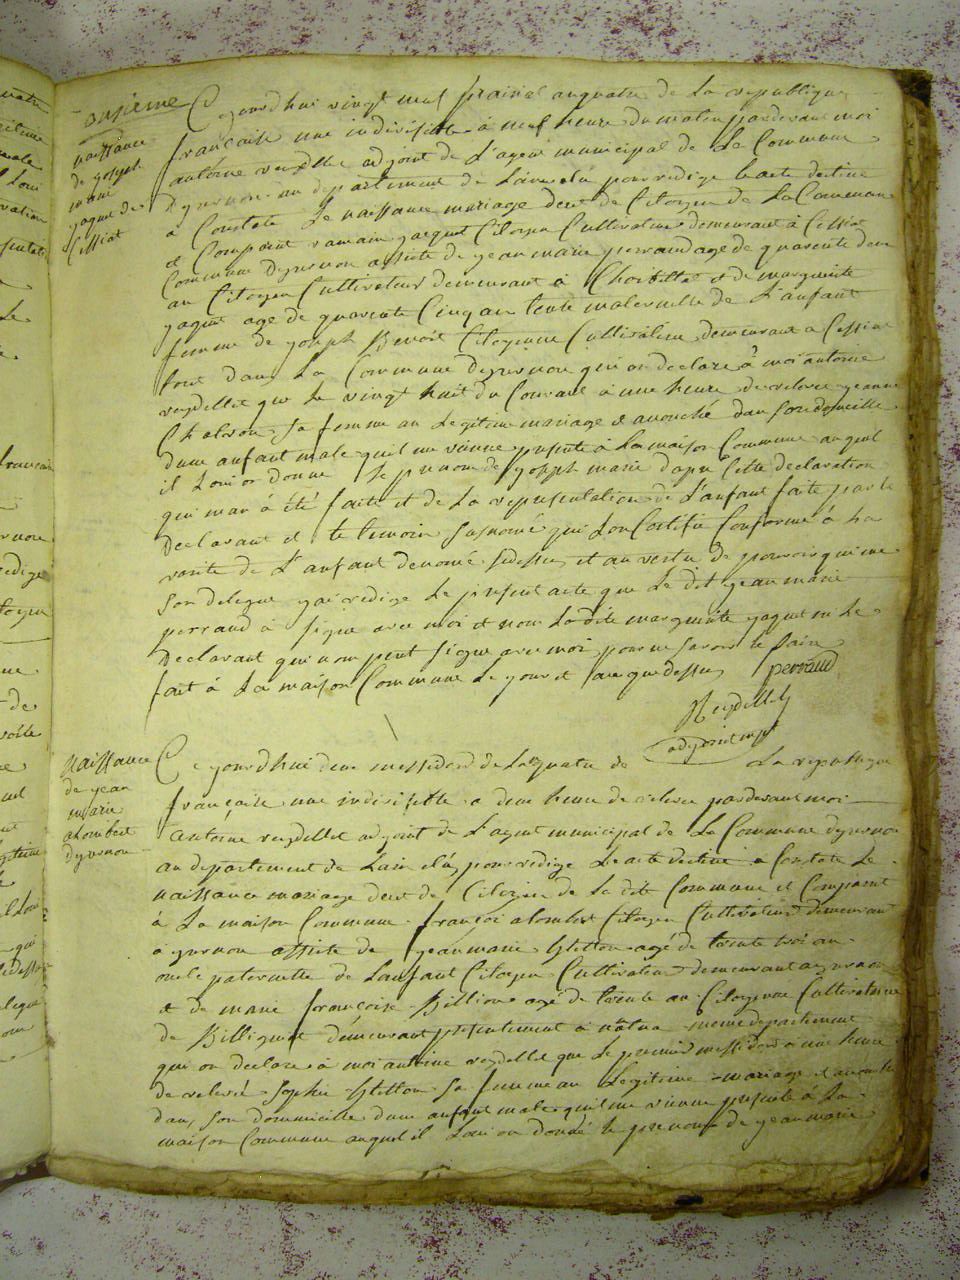 onsieme
naissance
de joseph
marie
jaquet de
Cessiat
Ce jourdhui vingt neuf prairial an quatre de La republique
françoise une indivisible à neuf heure du matin pardevant moi
antoine reydellet adjoint de L'agent municipal de La Commune
dyzernore au departement de Lain élû pour redige Le acte destine
a Constate Le naissance mariage deces de Citoyen de La Commune
et Comparut romain jacquet Citoyen Cultivateur demeurant à Cessiat
Commune dyzernore assisté de jean marie perraud age de quarente deux
an Citoyen Cultivateur demeurant à Charbillat et de marguerite
jaquet age de quarente Cinq an tente maternelle de L'anfant
femme de joseph Benoit Citoyenne Cultivatrice demeurant a Cessiat
tout dans La Commune dyzernore qui on declare à moi antoine
reydellet que Le vingt huit du Courant à une heure de relevée jeanne
Chaleron sa femme an Legitime mariage et acouché dan son domicille
dune anfant male quil me vienne presente à La maison Commune auquel
il Loui on donne Le prenom de joseph marie dapre Cette declaration
qui man à été faite et de La representation de L'anfant faite par le
declarant et le temoin susnomé qui Lon Certifie Conforme à La
verite de L'anfant denomé sidessus et an vertu de pouvoir qui me
son delegue jai redige Le present acte que Le dit jean marie
perraud à signe avec moi et non Ladite marguerite jaquet ni Le
declarant qui non peut signe avec moi pour ne savoir le faire
fait à La maison Commune Le jour et an que dessus perraud
Reydellet
adjoint mpl
naissance
de jean
marie
alombert
dyzernore
Ce jourdhui deux messidord de Lan quatre de La republique
françoise une indivisible a deux heure de relevee pardevant moi
antoine reydellet adjoint de L'agent municipal de La Commune dyzernore
au departement de Lain élû pour redige Le acte destiné a Constate Le
naissance mariage deces de Citoyen de La dite Commune et Comparut
à La maison Commune françoi alombert Citoyen Cultivateur demeurant
a yzernore assiste de jean marie age de trente troi an
oncle paternelle de Lanfant Citoyen Cultivateur demeurant a yzernore
et de marie françoise Billion age de trente an Citoyenne Cultivatrice
de Billignat demeurant presentement à même departement
qui on declare à moi antoine reydellet que Le premier messidord a une heure
de relevé sophie sa femme an Legitime mariage et acouché
dan son domicille dune anfant male quil me vienne presente à La
maison Commune auquel il Loui on donné le prenom de jean marie